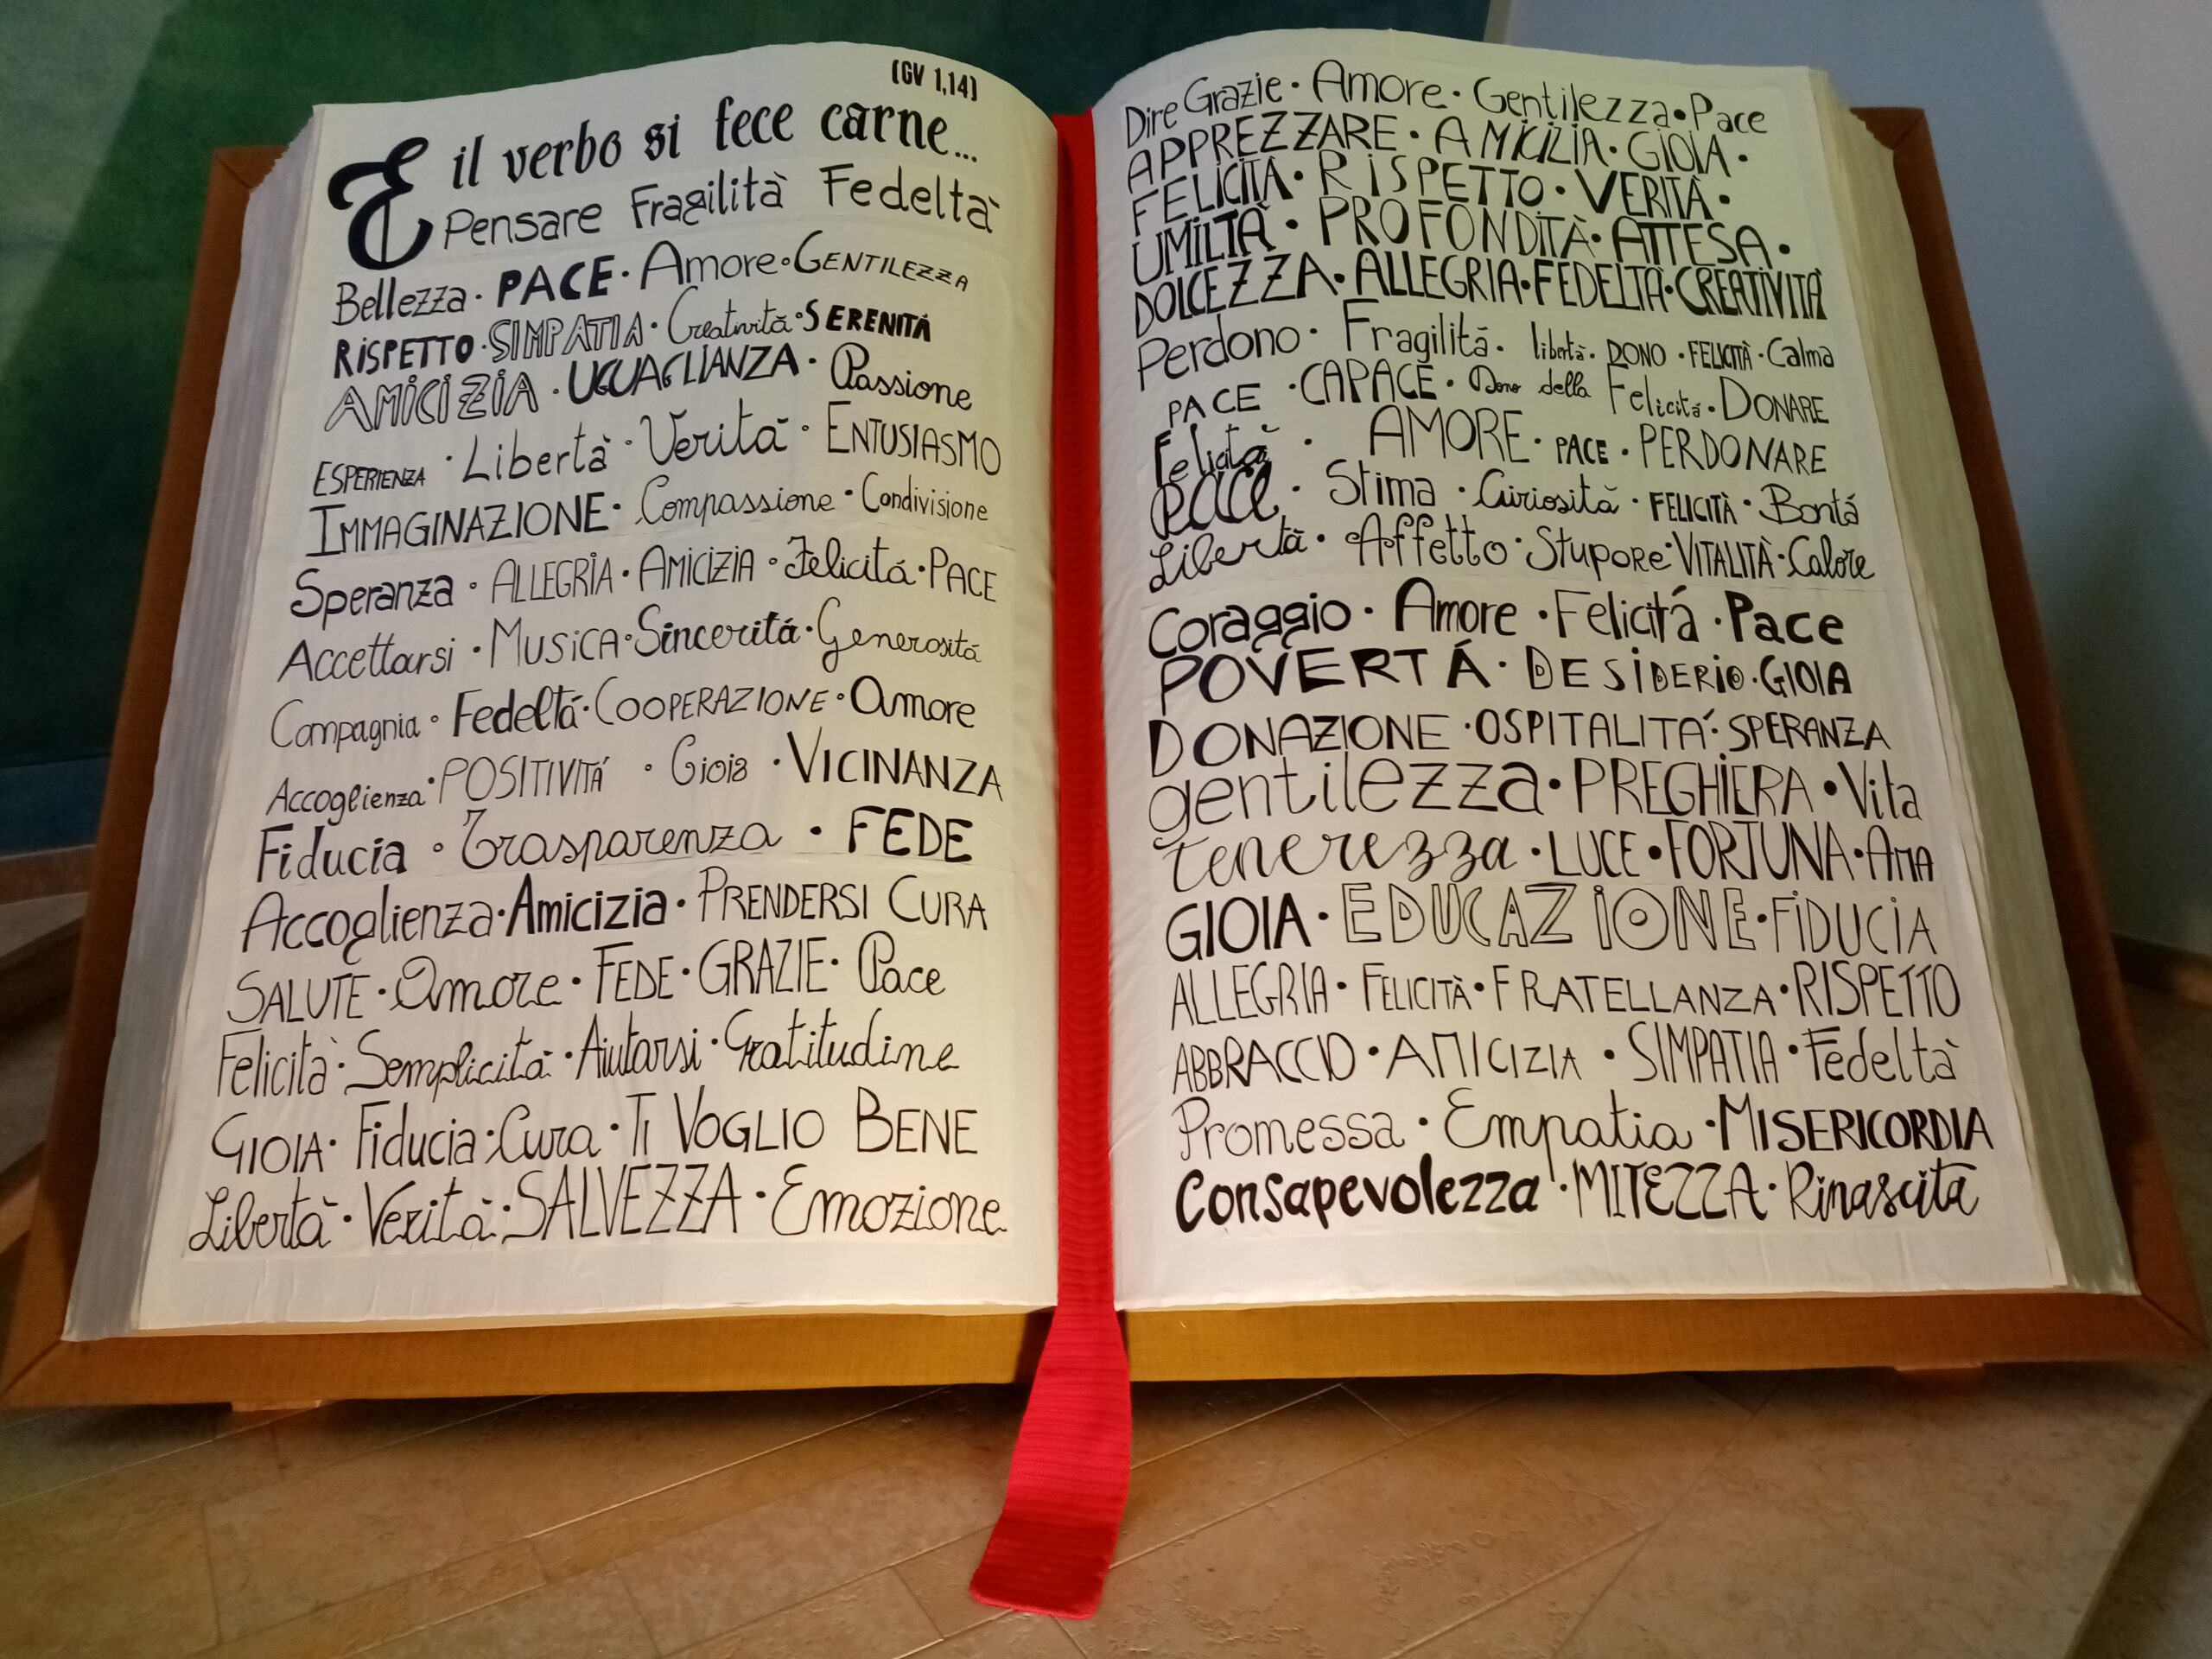 (GV 1,14)
E il verbo si fece carne...
Pensare Fragilità Fedeltà
Bellezza · PACE · Amore · GENTILEZZA
RISPETTO · SIMPATIA · Creatività · SERENITÁ
AMICIZIA · UGUAGLIANZA · Passione
ESPERIENZA · Libertà · Verità · ENTUSIASMO
IMMAGINAZIONE · Compassione · Condivisione
Speranza · ALLEGRIA · AMICIZIA · Felicitá · PACE
Accettarsi · MUSICA · Sinceritá · Generositá
Compagnia · Fedeltá · COOPERAZIONE · Amore
Accoglienza · POSITIVITÁ · Gioia · VICINANZA
Fiducia · Trasparenza · FEDE
Accoglienza · Amicizia · PRENDERSI CURA
SALUTE · Amore · FEDE · GRAZIE · Pace
Felicità · Semplicità · Aiutarsi · Gratitudine
GIOIA · Fiducia · Cura · TI VOGLIO BENE
Libertà · Verità · SALVEZZA · Emozione
Dire Grazie · Amore · Gentilezza · Pace
APPREZZARE · AMICIZIA · GIOIA ·
FELICITÀ · RISPETTO · VERITÀ ·
UMILTÀ · PROFONDITÀ · ATTESA ·
DOLCEZZA · ALLEGRIA · FEDELTÀ · CREATIVITÀ
Perdono · Fragilità · libertà · DONO · FELICITÀ · Calma
PACE · CAPACE · Dono della Felicitá · DONARE
Felicità · AMORE · PACE · PERDONARE
PACE · Stima · Curiosità · FELICITÀ · Bontá
Libertà · Affetto · Stupore · VITALITÀ · Calore
Coraggio · Amore · Felicitá · Pace
POVERTÁ · DESIDERIO · GIOIA
DONAZIONE · OSPITALITÁ · SPERANZA
gentilezza · PREGHIERA · Vita
tenerezza · LUCE · FORTUNA · AMA
GIOIA · EDUCAZIONE · FIDUCIA
ALLEGRIA · FELICITÀ · FRATELLANZA · RISPETTO
ABBRACCIO · AMICIZIA · SIMPATIA · Fedeltà
Promessa · Empatia · MISERICORDIA
Consapevolezza · MITEZZA · Rinascita